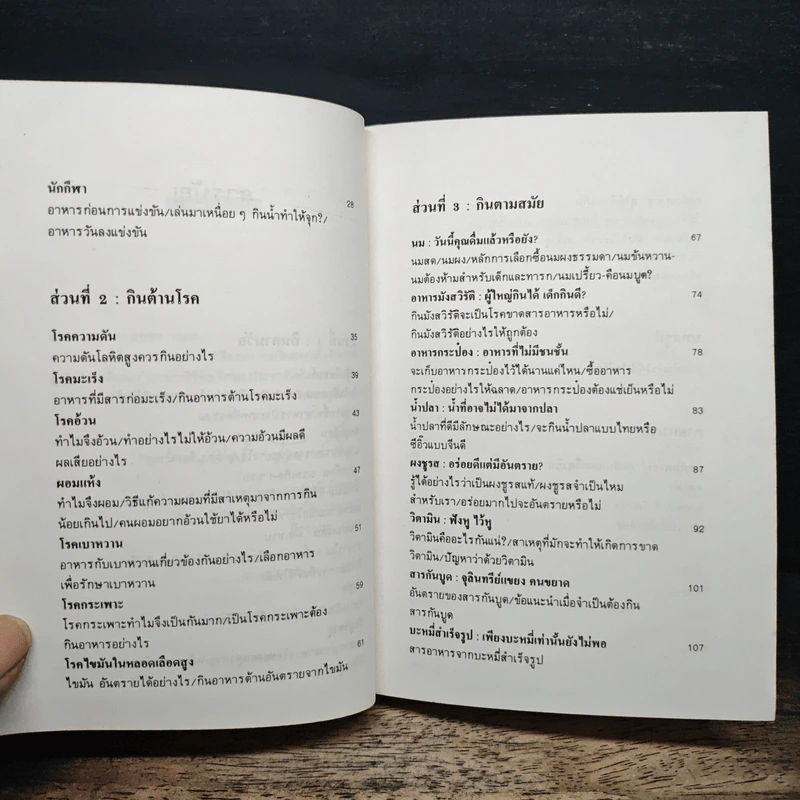 นักกีฬา
28
อาหารก่อนการแข่งขัน/เล่นมาเหนื่อย ๆ กินน้ำทำให้จุก?/
อาหารวันลงแข่งขัน
ส่วนที่ 2 : กินต้านโรค
โรคความดัน 35
ความดันโลหิตสูงควรกินอย่างไร
โรคมะเร็ง 39
อาหารที่มีสารก่อมะเร็ง/กินอาหารต้านโรคมะเร็ง
โรคอ้วน 43
ทำไมจึงอ้วน/ทำอย่างไรไม่ให้อ้วน/ความอ้วนมีผลดี
ผลเสียอย่างไร
ผอมแห้ง 47
ทำไมจึงผอม/วิธีแก้ความผอมที่มีสาเหตุมาจากการกิน
น้อยเกินไป/คนผอมอยากอ้วนใช้ยาได้หรือไม่
โรคเบาหวาน 51
อาหารกับเบาหวานเกี่ยวข้องกันอย่างไร/เลือกอาหาร
เพื่อรักษาเบาหวาน
โรคกระเพาะ 59
โรคกระเพาะทำไมจึงเป็นกันมาก/เป็นโรคกระเพาะต้อง
กินอาหารอย่างไร
โรคไขมันในหลอดเลือดสูง 61
ไขมัน อันตรายได้อย่างไร/กินอาหารต้านอันตรายจากไขมัน
ส่วนที่ 3 : กินตามสมัย
นม : วันนี้คุณดื่มแล้วหรือยัง? 67
นมสด/นมผง/หลักการเลือกซื้อนมผงธรรมดา/นมข้นหวาน-
นมต้องห้ามสำหรับเด็กและทารก/นมเปรี้ยว-คือนมบูด?
อาหารมังสวิรัติ : ผู้ใหญ่กินได้ เด็กกินดี? 74
กินมังสวิรัติจะเป็นโรคขาดสารอาหารหรือไม่/
กินมังสวิรัติอย่างไรให้ถูกต้อง
อาหารกระป๋อง : อาหารที่ไม่มีชนชั้น 78
จะเก็บอาหารกระป๋องไว้ได้นานแค่ไหน/ซื้ออาหาร
กระป๋องอย่างไรให้ฉลาด/อาหารกระป๋องต้องแช่เย็นหรือไม่
น้ำปลา : น้ำที่อาจไม่ได้มาจากปลา 83
น้ำปลาที่ดีมีลักษณะอย่างไร/จะกินน้ำปลาแบบไทยหรือ
ซีอิ๊วแบบจีนดี
ผงชูรส : อร่อยดีแต่มีอันตราย? 87
รู้ได้อย่างไรว่าเป็นผงชูรสแท้/ผงชูรสจำเป็นไหม
สำหรับเรา/อร่อยมากไปจะอันตรายหรือไม่
วิตามิน : ฟังหู ไว้หู 92
วิตามินคืออะไรกันแน่?/สาเหตุที่มักจะทำให้เกิดการขาด
วิตามิน/ปัญหาว่าด้วยวิตามิน
สารกันบูด : จุลินทรีย์แขยง คนขยาด 101
อันตรายของสารกันบูด/ข้อแนะนำเมื่อจำเป็นต้องกิน
สารกันบูด
บะหมี่สำเร็จรูป : เพียงบะหมี่เท่านั้นยังไม่พอ 107
สารอาหารจากบะหมี่สำเร็จรูป